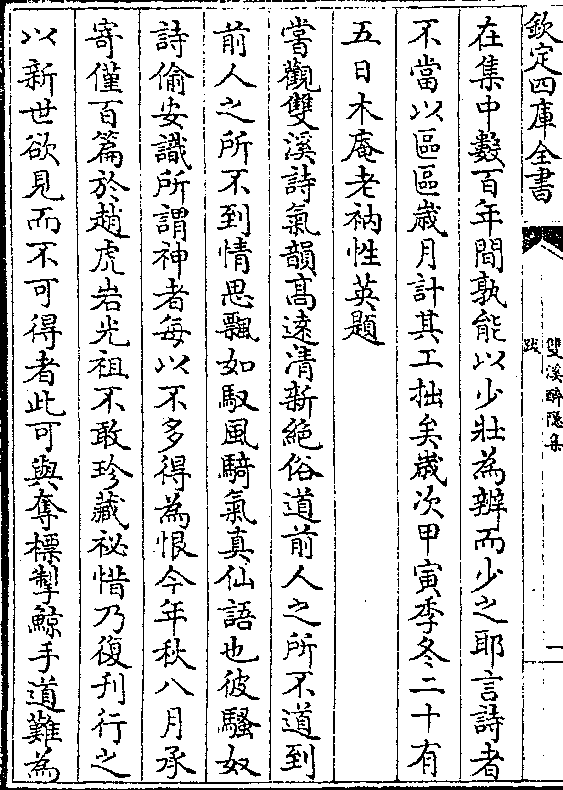 欽定四庫全書
雙溪醉隱集
跋
一
在集中數百年間孰能以少壯為辨而少之耶言詩者
不當以區區歲月計其工拙矣歲次甲寅季冬二十有
五日木庵老衲性英題
嘗觀雙溪詩氣韻高遠清新絶俗道前人之所不道到
前人之所不到情思飄如馭風騎氣真仙語也彼騷奴
詩偷安識所謂神者每以不多得為恨今年秋八月承
寄僅百篇於趙虎岩光祖不敢珍藏祕惜乃復刊行之
以新世欲見而不可得者此可與奪標掣鯨手道難為